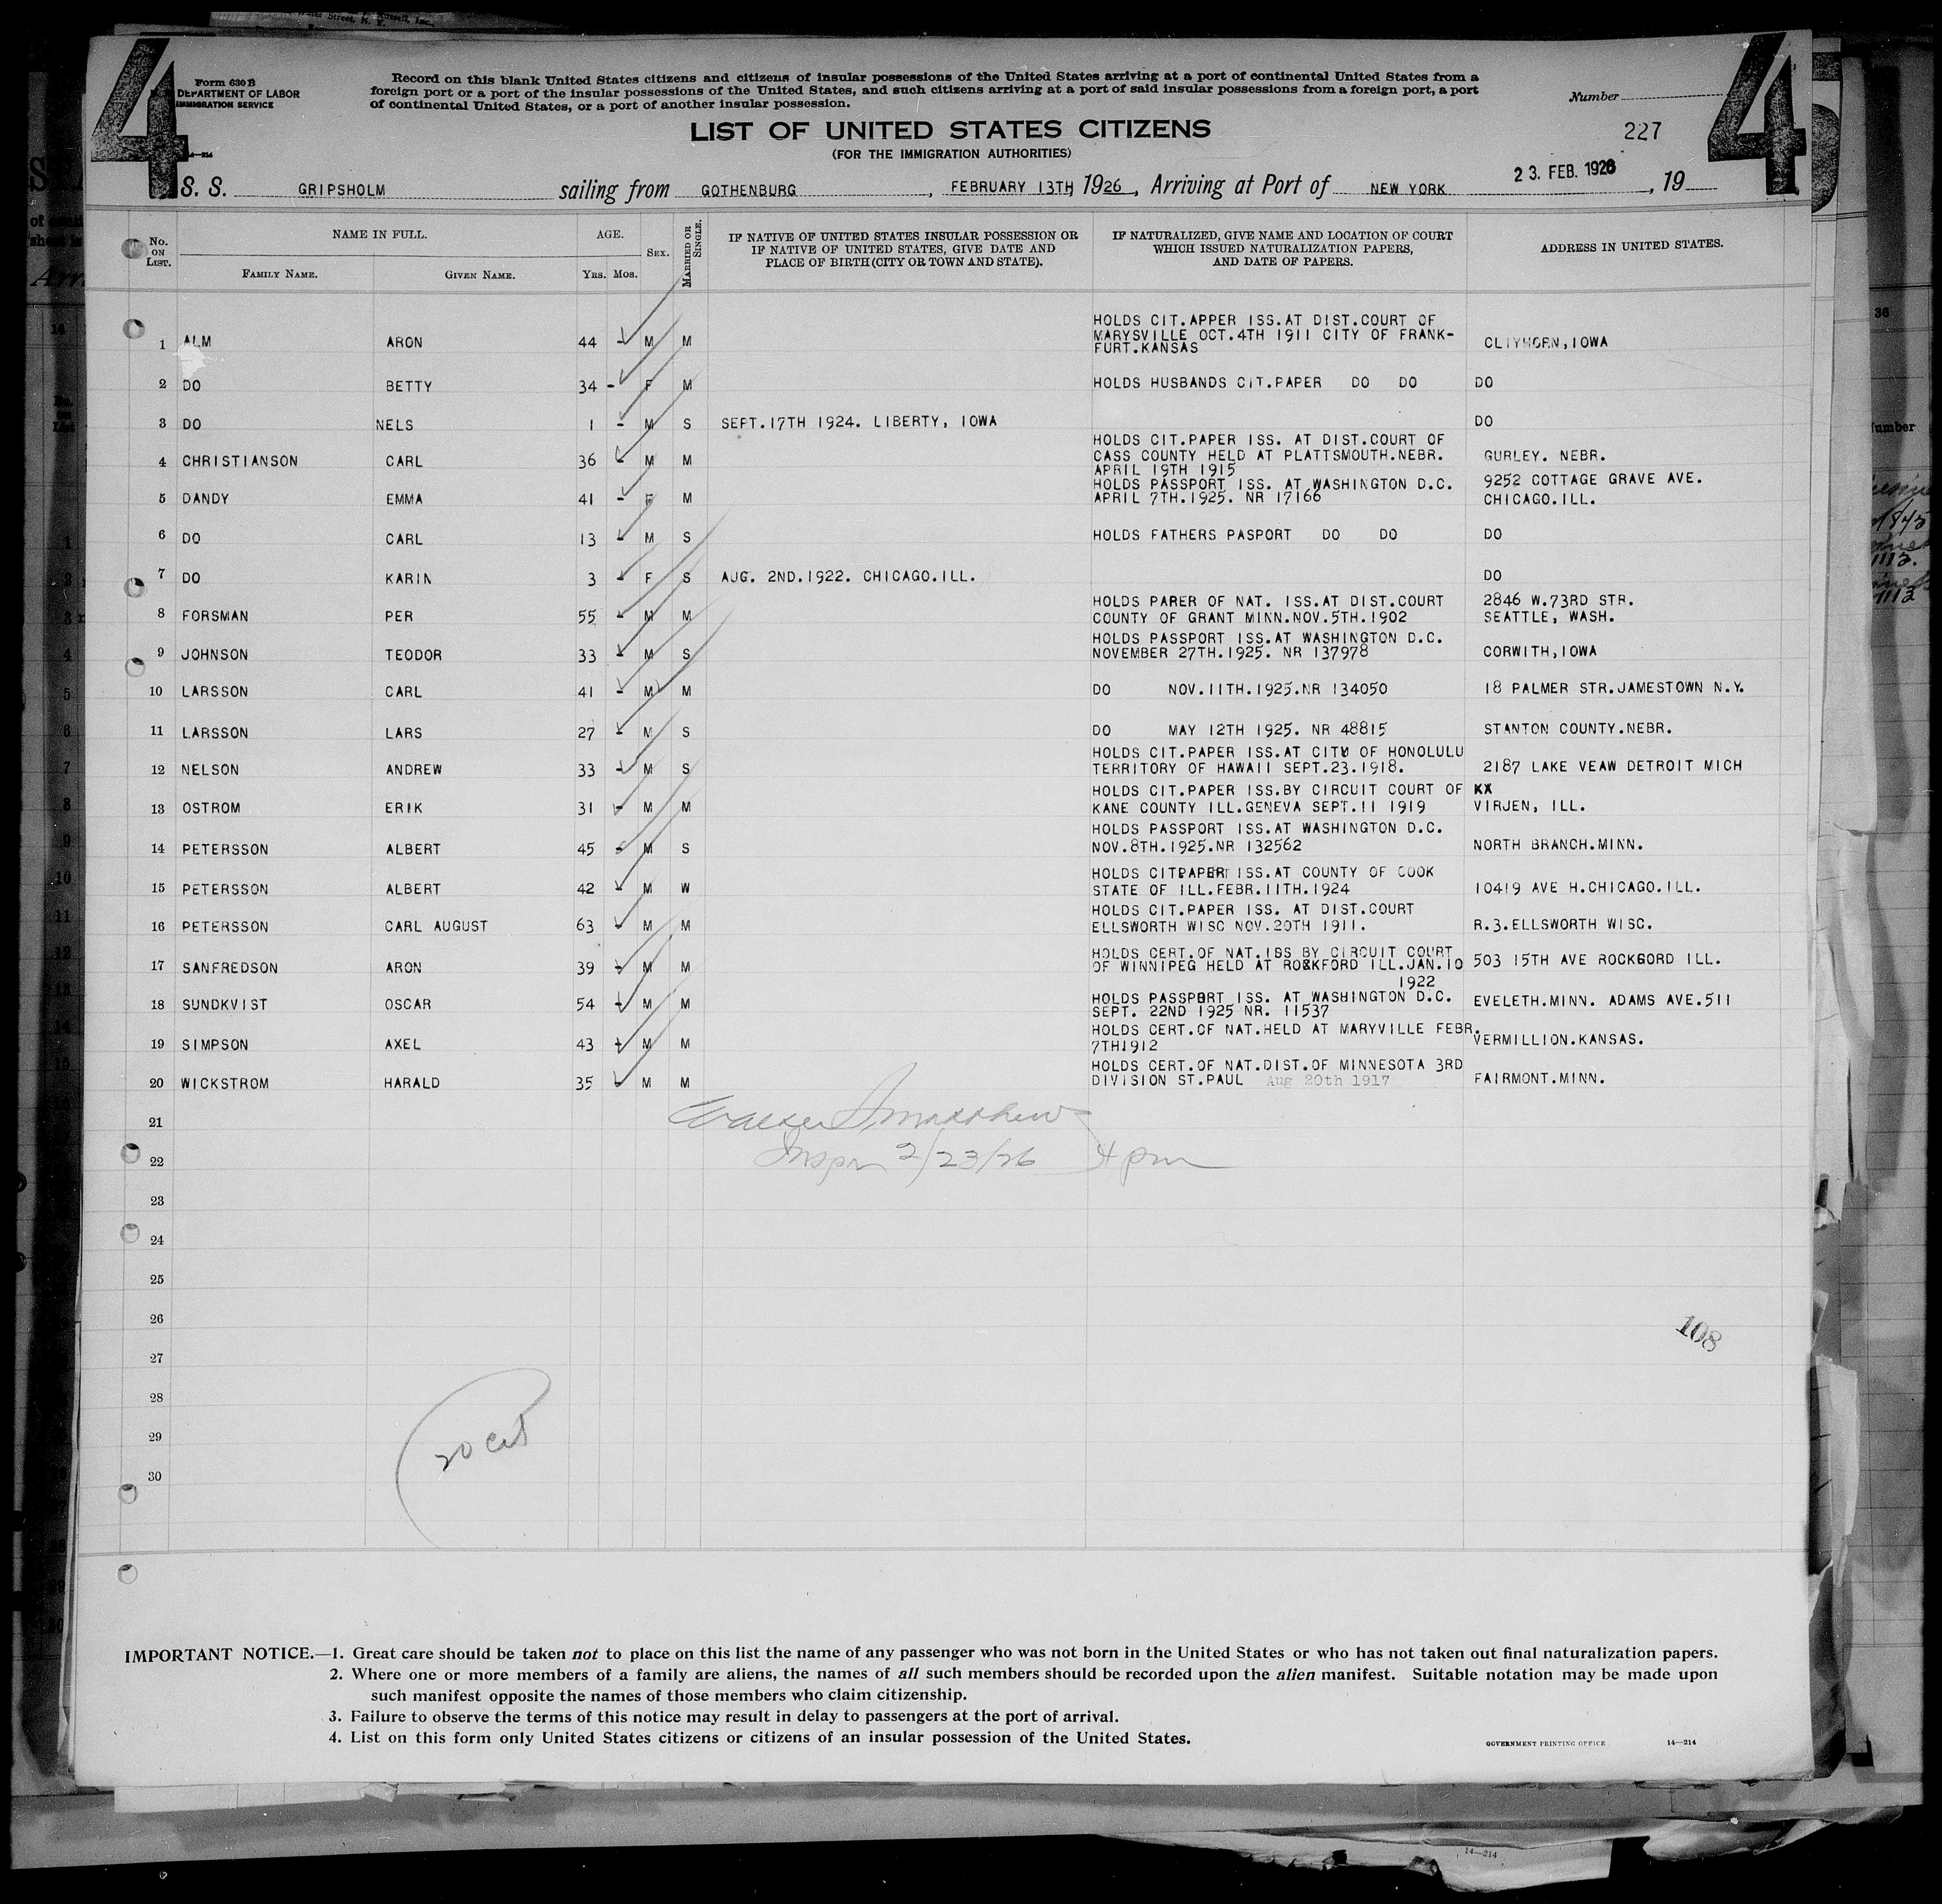 4
Form 630 B
DEPARTMENT OF LABOR
IMMIGRATION SERVICE
Record on this blank United States citizens and citizens of insular possessions of the United States arriving at a port of continental United States from a
foreign port or a port of the insular possessions of the United States, and such citizens arriving at a port of said insular possessions from a foreign port, a port
of continental United States, or a port of another insular possession.
Number
4
LIST OF UNITED STATES CITIZENS
227
(FOR THE IMMIGRATION AUTHORITIES)
S. S. GRIPSHOLM sailing from GOTHENBURG, FEBRUARY 13TH, 1926, Arriving at Port of NEW YORK 23. FEB. 1926, 19
No. ON LIST. NAME IN FULL. FAMILY NAME. GIVEN NAME. AGE. YRS. MOS. SEX. MARRIED OR SINGLE. IF NATIVE OF UNITED STATES INSULAR POSSESSION OR IF NATIVE OF UNITED STATES, GIVE DATE AND PLACE OF BIRTH (CITY OR TOWN AND STATE). IF NATURALIZED, GIVE NAME AND LOCATION OF COURT WHICH ISSUED NATURALIZATION PAPERS, AND DATE OF PAPERS. ADDRESS IN UNITED STATES.
1 ALM ARON 44 - M M HOLDS CIT.APPER ISS.AT DIST.COURT OF MARYSVILLE OCT.4TH 1911 CITY OF FRANK-FURT.KANSAS IOWA
2 DO BETTY 34 - F M HOLDS HUSBANDS CIT.PAPER DO DO DO
3 DO NELS 1 - M S SEPT.17TH 1924. LIBERTY, IOWA DO
4 CHRISTIANSON CARL 36 - M M HOLDS CIT.PAPER ISS. AT DIST.COURT OF CASS COUNTY HELD AT PLATTSMOUTH.NEBR. APRIL 19TH 1915 GURLEY. NEBR.
5 DANDY EMMA 41 - F M HOLDS PASSPORT ISS. AT WASHINGTON D.C. APRIL 7TH.1925. NR 17166 9252 COTTAGE GRAVE AVE. CHICAGO.ILL.
6 DO CARL 13 - M S HOLDS FATHERS PASPORT DO DO DO
7 DO KARIN 3 - F S AUG. 2ND.1922. CHICAGO.ILL. DO
8 FORSMAN PER 55 - M M HOLDS PARER OF NAT. ISS.AT DIST.COURT COUNTY OF GRANT MINN.NOV.5TH.1902 2846 W.73RD STR. SEATTLE, WASH.
9 JOHNSON TEODOR 33 - M S HOLDS PASSPORT ISS.AT WASHINGTON D.C. NOVEMBER 27TH.1925. NR 137978 CORWITH,IOWA
10 LARSSON CARL 41 - M M DO NOV.11TH.1925.NR 134050 18 PALMER STR.JAMESTOWN N.Y.
11 LARSSON LARS 27 - M S DO MAY 12TH 1925. NR 48815 STANTON COUNTY.NEBR.
12 NELSON ANDREW 33 - M S HOLDS CIT.PAPER ISS.AT CITY OF HONOLULU TERRITORY OF HAWAII SEPT.23.1918. 2187 LAKE VEAW DETROIT MICH
13 OSTROM ERIK 31 - M M HOLDS CIT.PAPER ISS.BY CIRCUIT COURT OF KANE COUNTY ILL.GENEVA SEPT.11 1919 XX VIRJEN, ILL.
14 PETERSSON ALBERT 45 - M S HOLDS PASSPORT ISS.AT WASHINGTON D.C. NOV.8TH.1925.NR 132562 NORTH BRANCH.MINN.
15 PETERSSON ALBERT 42 - M W HOLDS CITPAPER ISS.AT COUNTY OF COOK STATE OF ILL.FEBR.11TH.1924 10419 AVE H.CHICAGO.ILL.
16 PETERSSON CARL AUGUST 63 - M M HOLDS CIT.PAPER ISS. AT DIST.COURT ELLSWORTH WISC NOV.20TH 1911. R.3.ELLSWORTH WISC.
17 SANFREDSON ARON 39 - M M HOLDS CERT.OF NAT.IBS BY CIRCUIT COURT OF WINNIPEG HELD AT ROCKFORD ILL.JAN.10 1922 503 15TH AVE ROCKGORD ILL.
18 SUNDKVIST OSCAR 54 - M M HOLDS PASSPORT ISS. AT WASHINGTON D.C. SEPT. 22ND 1925 NR. 11537 EVELETH.MINN. ADAMS AVE.511
19 SIMPSON AXEL 43 - M M HOLDS CERT.OF NAT.HELD AT MARYVILLE FEBR. 7TH1912 VERMILLION.KANSAS.
20 WICKSTROM HARALD 35 - M M HOLDS CERT.OF NAT.DIST.OF MINNESOTA 3RD DIVISION ST.PAUL Aug 20th 1917 FAIRMONT.MINN.
21
Walter S. Matthews
22
Inspr 2/23/26 4 pm
23
24
25
26
108
27
28
29
20 Cit
30
IMPORTANT NOTICE.—1. Great care should be taken not to place on this list the name of any passenger who was not born in the United States or who has not taken out final naturalization papers.
2. Where one or more members of a family are aliens, the names of all such members should be recorded upon the alien manifest. Suitable notation may be made upon
such manifest opposite the names of those members who claim citizenship.
3. Failure to observe the terms of this notice may result in delay to passengers at the port of arrival.
4. List on this form only United States citizens or citizens of an insular possession of the United States.
GOVERNMENT PRINTING OFFICE 14—214
14—214